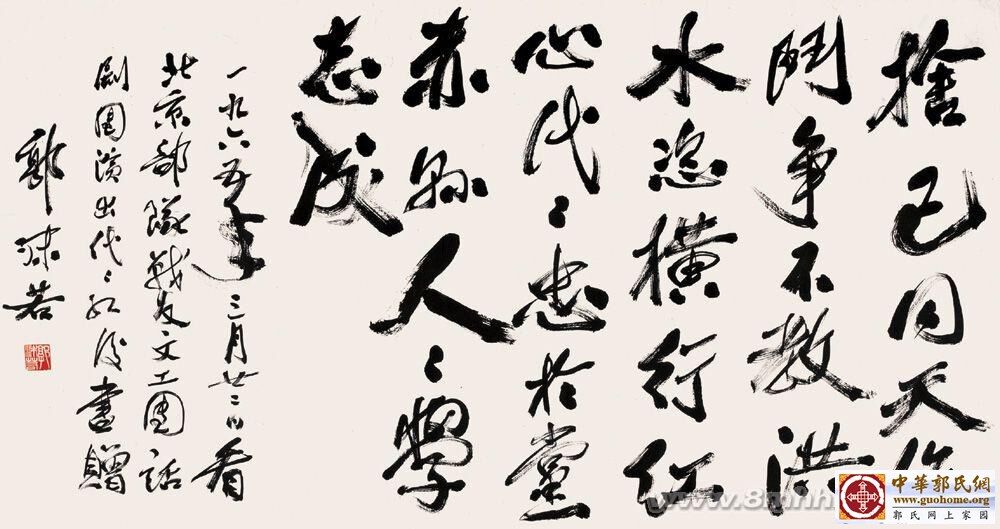 捨己同天作
鬥争不教洪
水恣橫行紅
心代々忠於黨
赤縣人々學
志成
一九六五年三月廿二日看
北京部隊戰友文工團話
劇團演出代々紅後書贈
郭沫若
中華郭氏網
www.guohome.org
郭氏网上家园